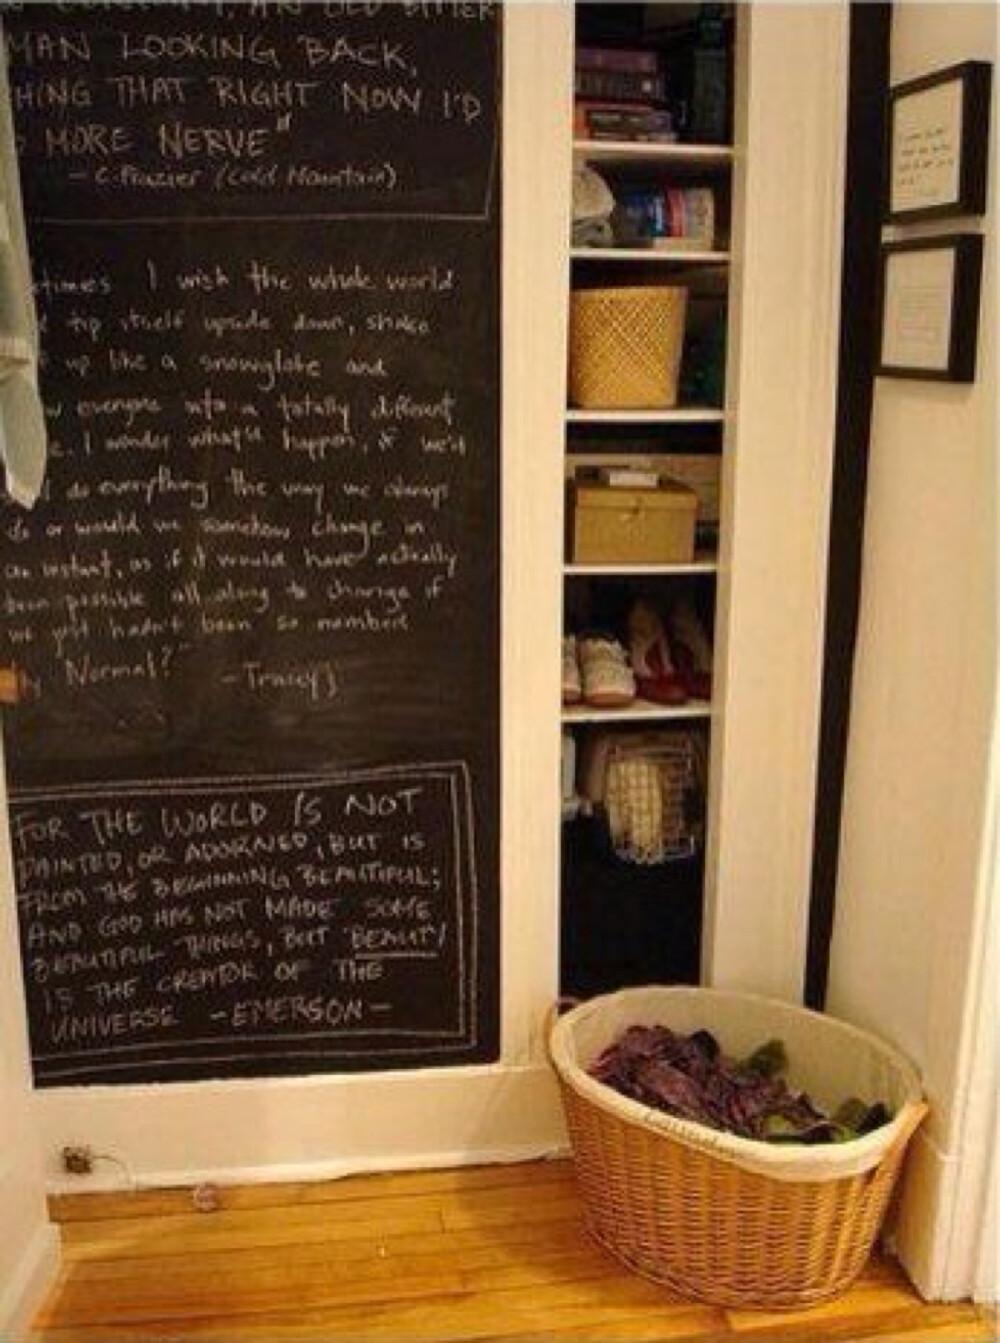 AN OLD BITTER
MAN LOOKING BACK,
HING THAT RIGHT NOW I'D
MORE NERVE"
- C. Frazier (Cold Mountain)
times I wish the whole world
tip itself upside down, shake
up like a snowglobe and
w everyone into a totally different
I wonder what'd happen, if we'd
do everything the way we always
do or would we somehow change in
an instant, as if it would have actually
been possible all along to change if
we just hadn't been so
Normal?" - Tracey J
FOR THE WORLD IS NOT
PAINTED, OR ADORNED, BUT IS
FROM THE BEGINNING BEAUTIFUL;
AND GOD HAS NOT MADE SOME
BEAUTIFUL THINGS, BUT BEAUTY
IS THE CREATOR OF THE
UNIVERSE - EMERSON -